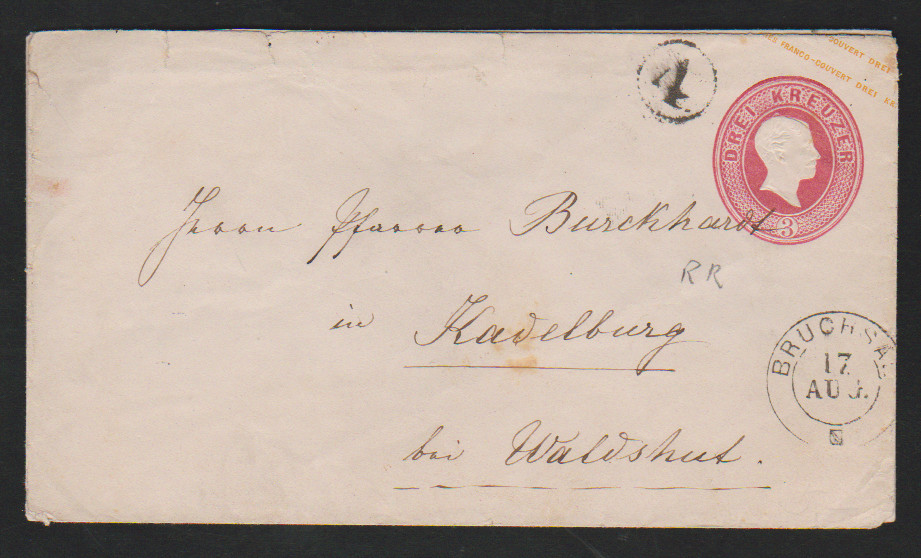 COUVERT DREI
FRANCO-COUVERT DREI KR
DREI KREUZER
3
Herrn Pfarrer Burckhardt
RR
in Kadelburg
BRUCHSAL
17
AUG.
bei Waldshut.